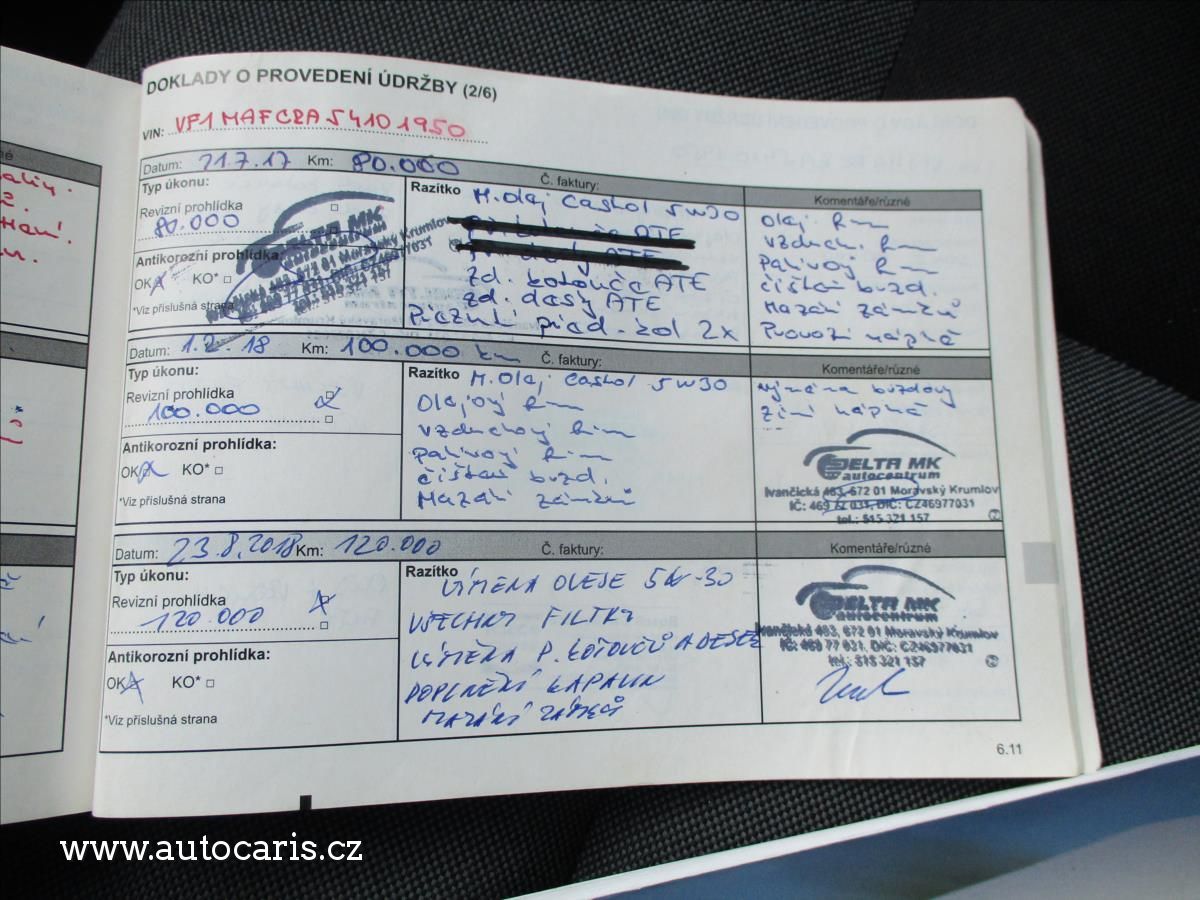 DOKLADY O PROVEDENÍ ÚDRŽBY (2/6)
VIN: VF1MAFCRA54101950
Datum: 21.7.17 Km: 80.000 Č. faktury:
Typ úkonu:
Revizní prohlídka
80.000
Antikorozní prohlídka:
OK KO*
*Viz příslušná strana
Razítko M.olej Castrol 5W30
ATE
ATE
zd. kotouče ATE
zd. desky ATE
před. kol 2x
Komentáře/různé
Olej.
vzduch.
Palivový
čištění brzd.
Mazání zámků
Provozní náplně
DELTA MK
Datum: 1.2.18 Km: 100.000 km Č. faktury:
Typ úkonu:
Revizní prohlídka
100.000
Antikorozní prohlídka:
OK KO*
*Viz příslušná strana
Razítko M.Olej Castrol 5W30
Olejový
Vzduchový
Palivový
čištění brzd.
Mazání zámků
Komentáře/různé
výměna brzdový
náplně
DELTA MK
autocentrum
Ivančická 463, 672 01 Moravský Krumlov
IČ: 469 77 031, DIČ: CZ46977031
tel.: 515 321 157
Datum: 23.8.2018 Km: 120.000 Č. faktury:
Typ úkonu:
Revizní prohlídka
120.000
Antikorozní prohlídka:
OK KO*
*Viz příslušná strana
Razítko
VÝMĚNA OLEJE 5W-30
VŠECHNY FILTRY
VÝMĚNA P. KOTOUČŮ A DESEK
DOPLNĚNÍ KAPALIN
MAZÁNÍ ZÁMKŮ
Komentáře/různé
DELTA MK
autocentrum
Ivančická 463, 672 01 Moravský Krumlov
IČ: 469 77 031, DIČ: CZ46977031
tel.: 515 321 157
6.11
www.autocaris.cz